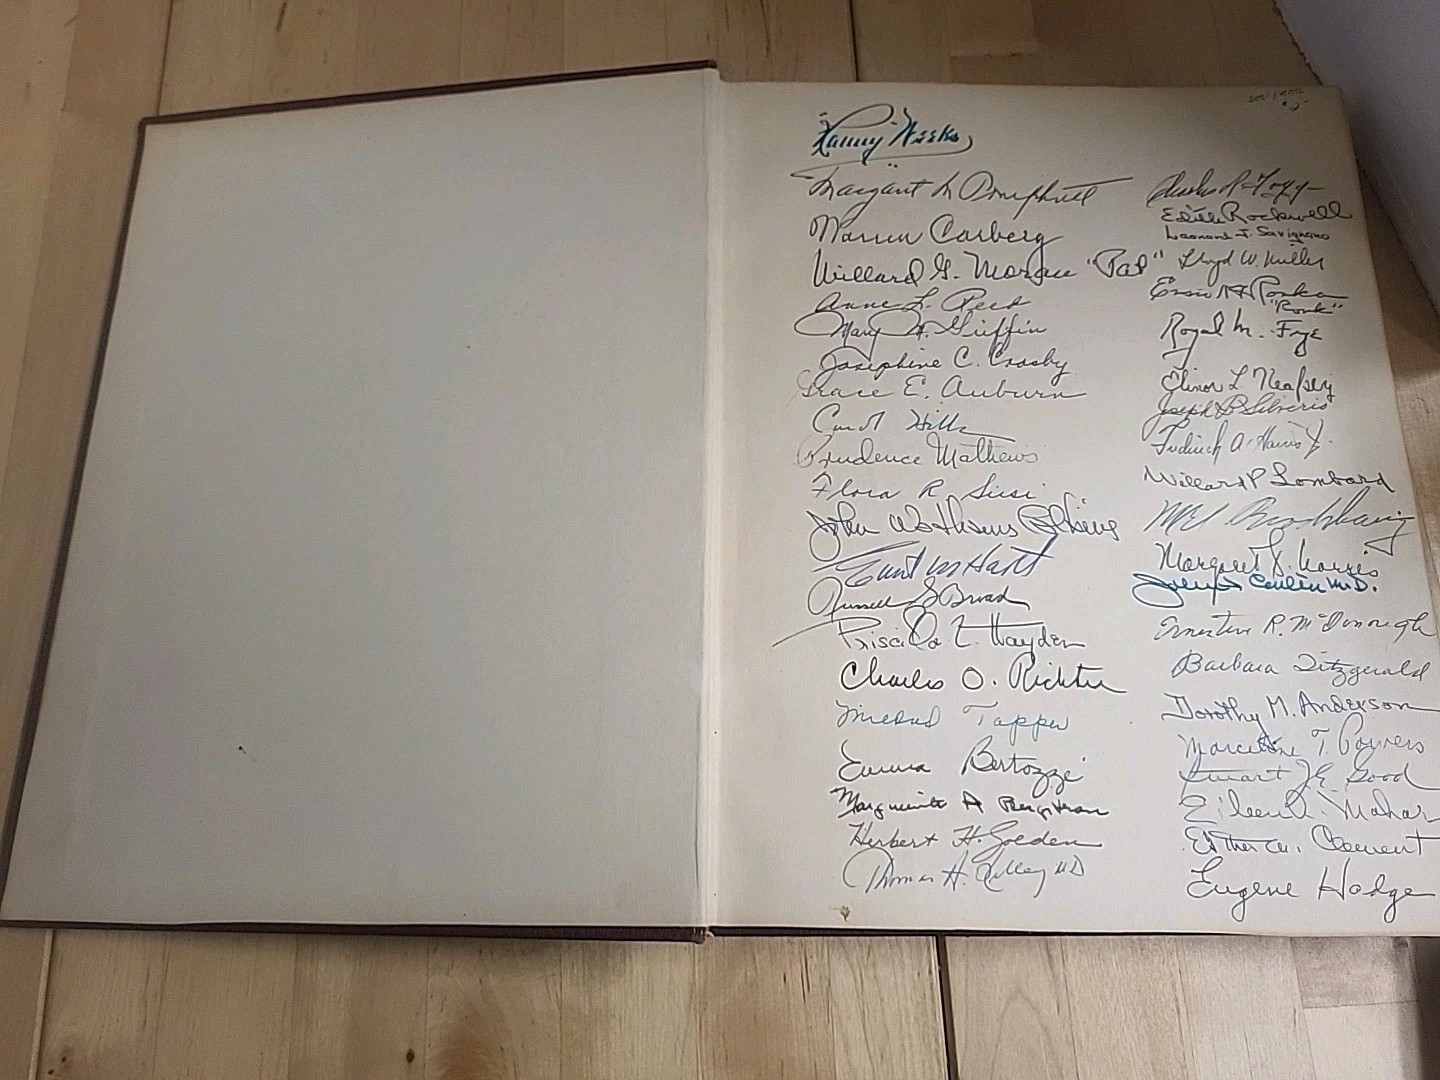 "Lanny" Weeks
Margaret M
Warren Carberg
Willard G. Morgan "Pat"
Anne L. Reed
Mary A. Griffin
Josephine C. Crosby
Grace E. Auburn
Carol Hills
Prudence Mathews
Flora R. Susi
John Watkins
M Hart
Russell G Broad
Priscilla L. Hayden
Charles O. Richter
Tapper
Emma Bertozzi
Marguerite A Bergstrom
Herbert H. Golden
Thomas A. Kelley MD
Charles
Edith Rockwell
Leonard J. Savignano
Lloyd W. Miller
"Ronk"
Royal M. Frye
Elinor L Neafsey
Joseph B Silverio
Fredrick A. Harris Jr.
Willard P Lombard
Margaret L. Norris
Joseph Conlin M.D.
Ernestine R. McDonough
Barbara Fitzgerald
Dorothy M. Anderson
T.
Stuart Good
Eileen A. Mahar
Esther M. Clement
Eugene Hodge